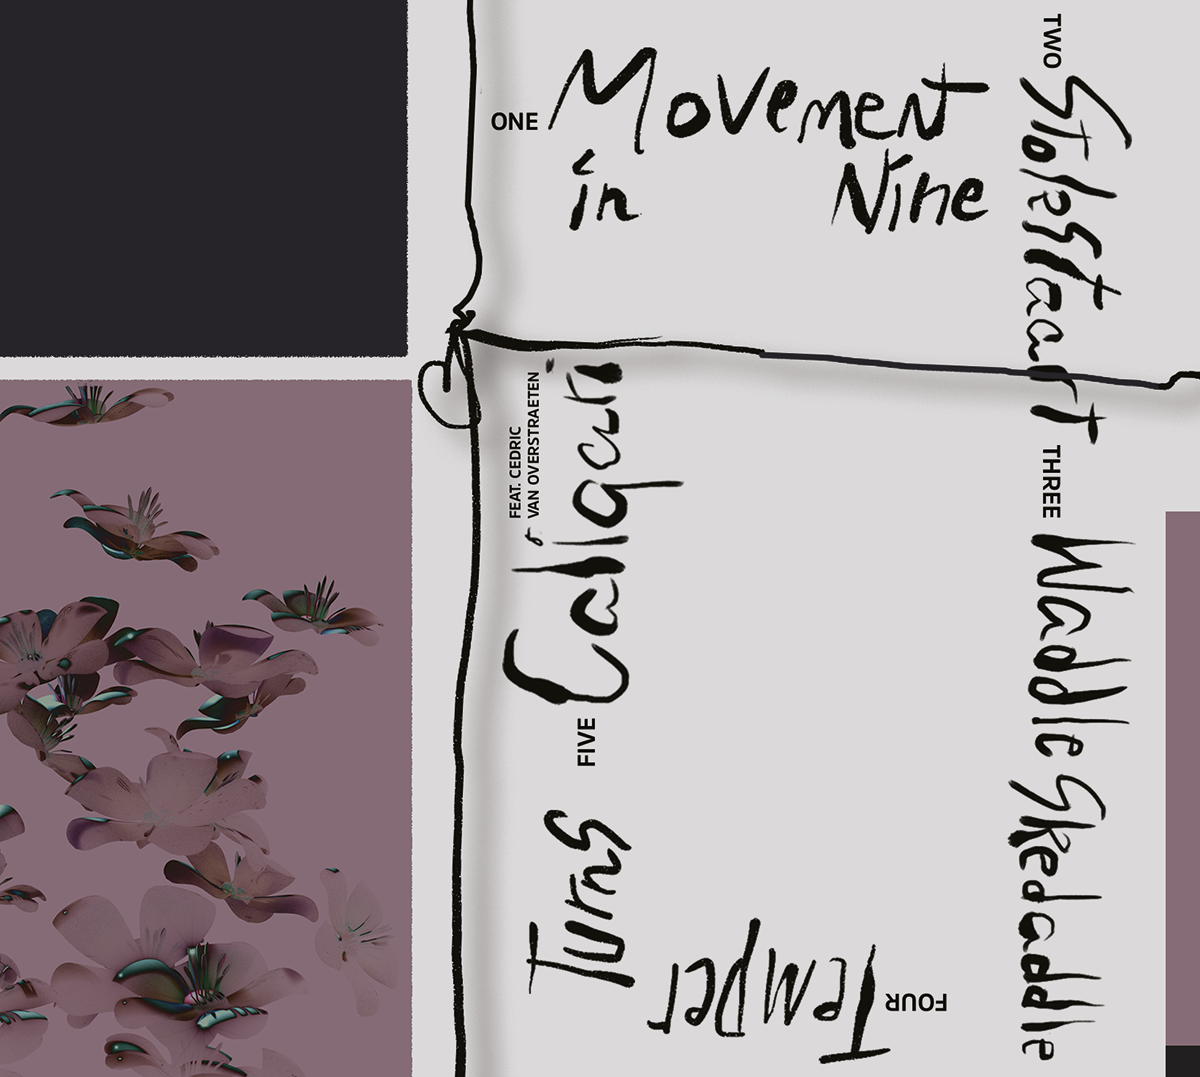 ONE Movement
in Nine
TWO Stokstaart
THREE Waddle Skedaddle
FOUR Temper
Turns
FIVE Caligari
FEAT. CEDRIC
VAN OVERSTRAETEN